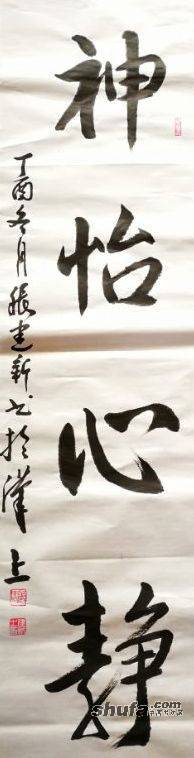 神怡心静
丁酉冬月张建新书于汉上
shufa.com